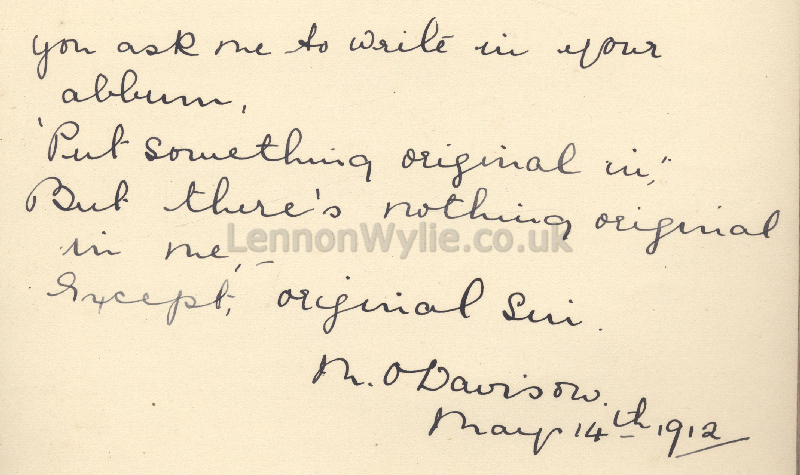 you ask me to write in your
album,
'Put something original in,"
But there's nothing original
in me, –
LennonWylie.co.uk
Except, original Sin.
M. O Davison.
May 14th 1912